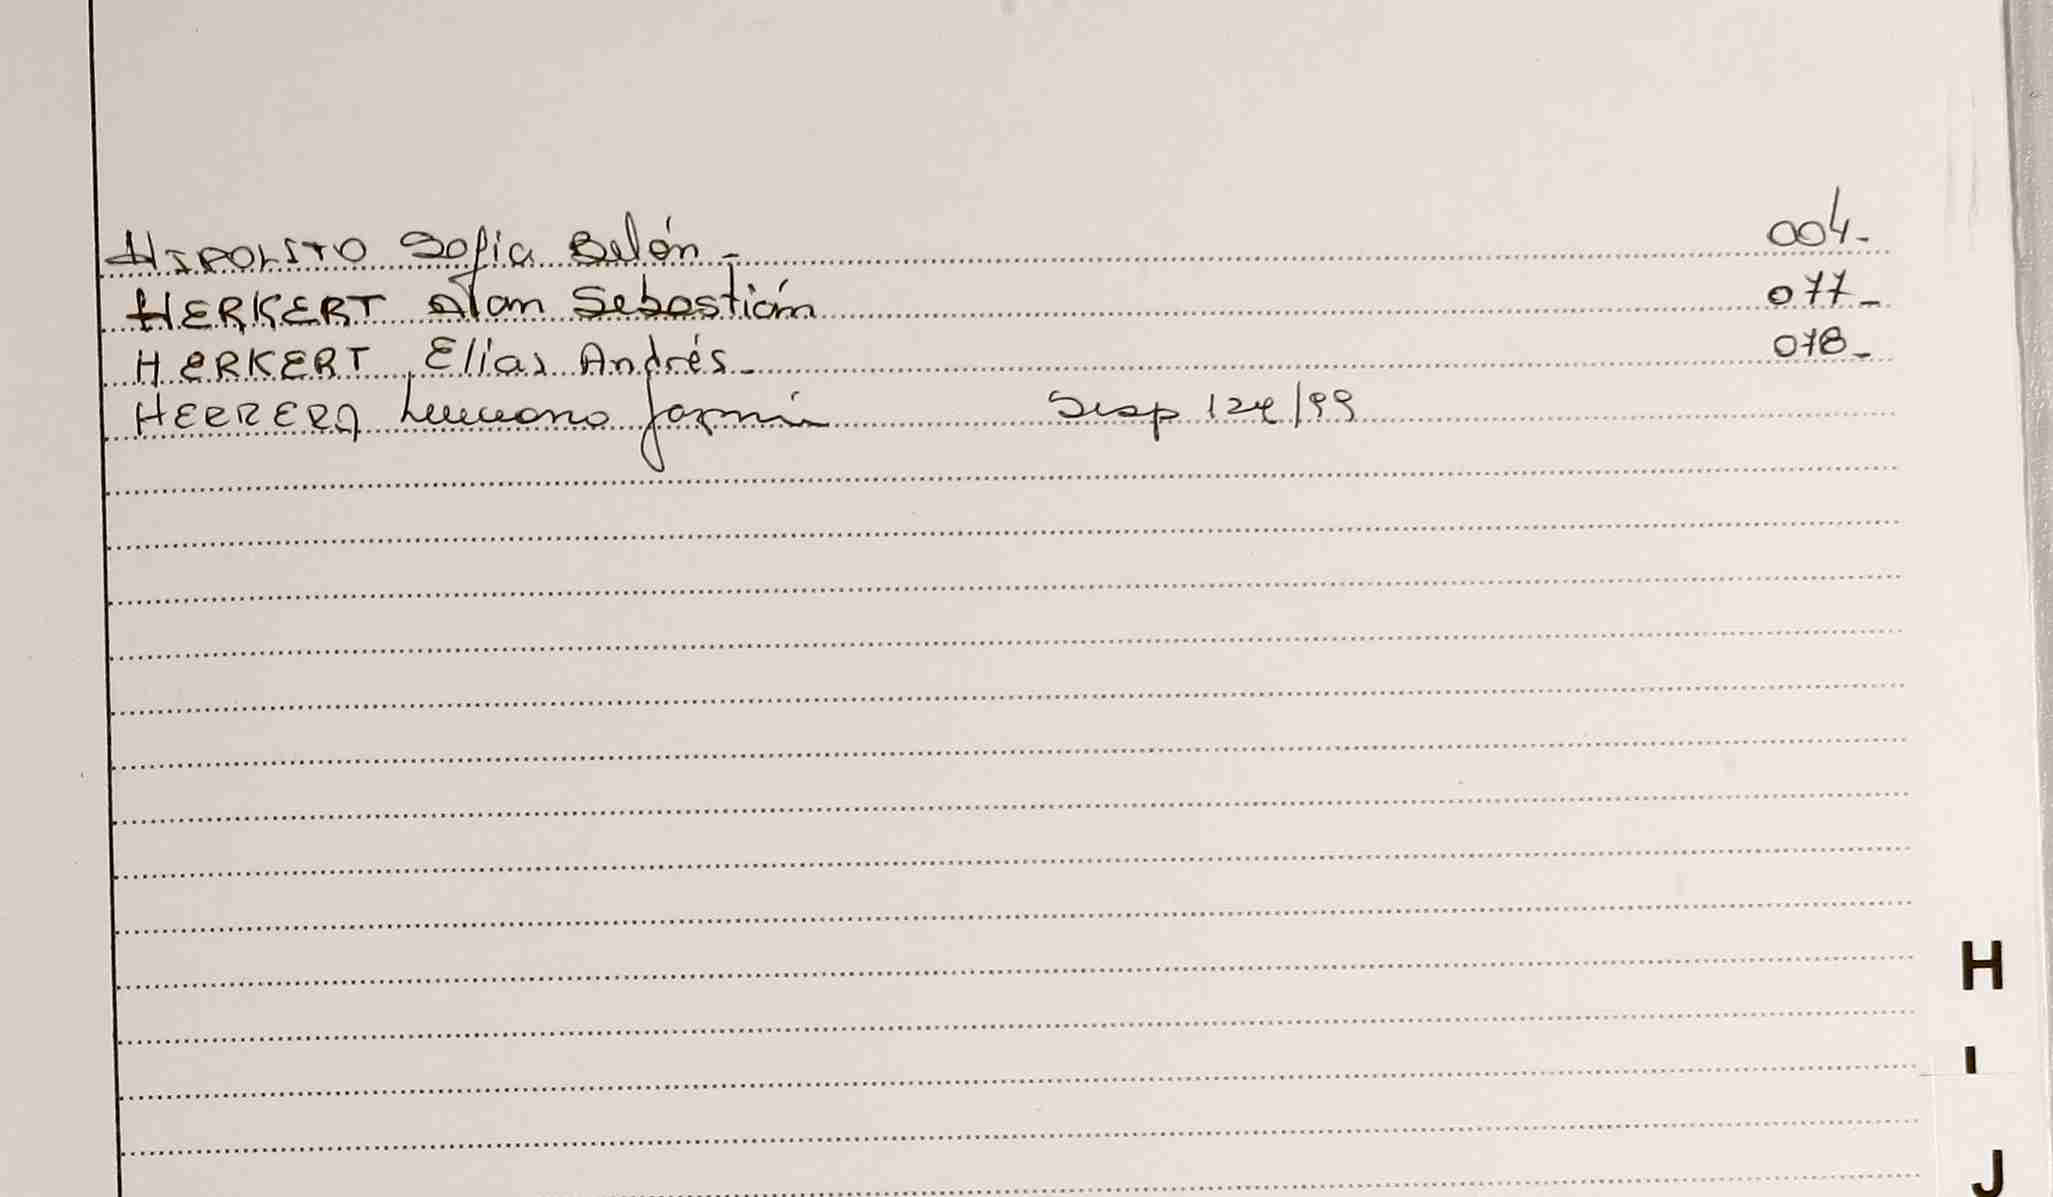 HIPOLITO Sofia Belén - 004-
HERKERT Alan Sebastián 077-
HERKERT Elias Andrés - 078-
HERRERA Luciano /99
H
I
J